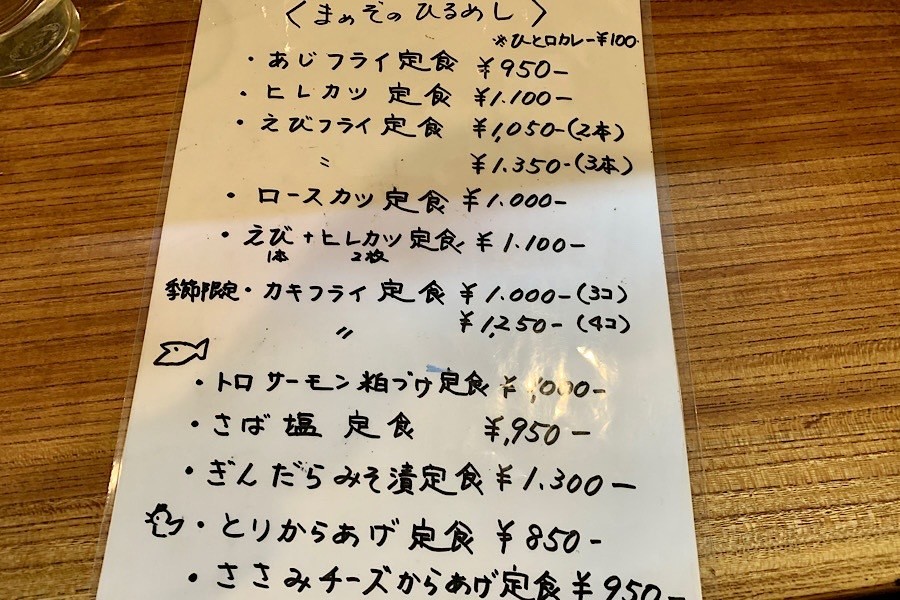 〈まめぞのひるめし〉
※ひと口カレー¥100-
・あじフライ定食 ¥950-
・ヒレカツ 定食 ¥1.100-
・えびフライ定食 ¥1,050-(2本)
〃 ¥1.350-(3本)
・ロースカツ 定食 ¥1.000-
・えび+ヒレカツ 定食 ¥1.100-
1本 2枚
季節限定・カキフライ 定食 ¥1.000-(3コ)
〃 ¥1,250-(4コ)
・トロサーモン粕づけ定食 ¥1,000-
・さば塩 定食 ¥,950-
・ぎんだらみそ漬定食 ¥1.300-
・とりからあげ 定食 ¥850-
・ささみチーズからあげ定食 ¥950-